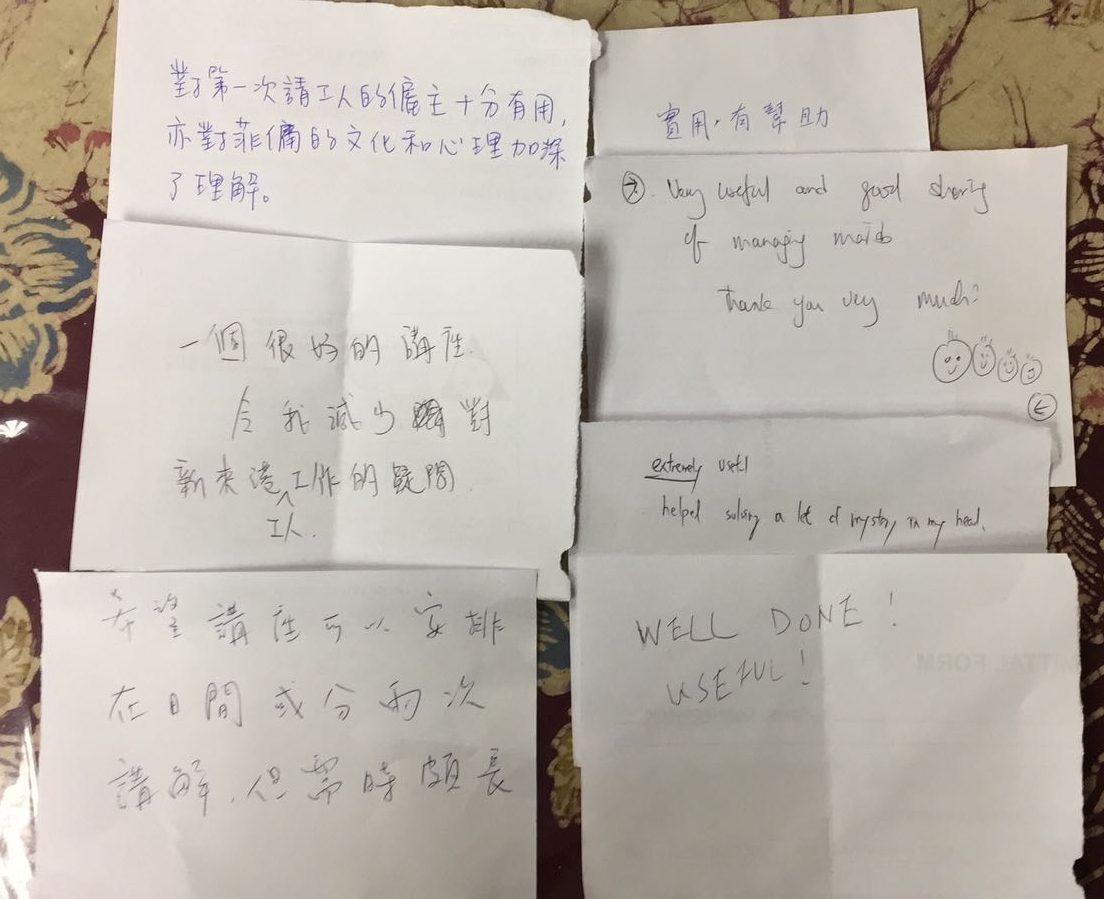 對第一次請工人的僱主十分有用,
亦對菲傭的文化和心理加深
了理解。
一個很好的講座.
令我減少對
新來港工人工作的疑問.
希望講座可以安排
在日間或分兩次
講解.但需時頗長
實用,有幫助
Very useful and good sharing
of managing maids
thank you very much!
extremely useful
helped solving a lot of mystery in my head.
WELL DONE!
USEFUL!
MITTAL FORM